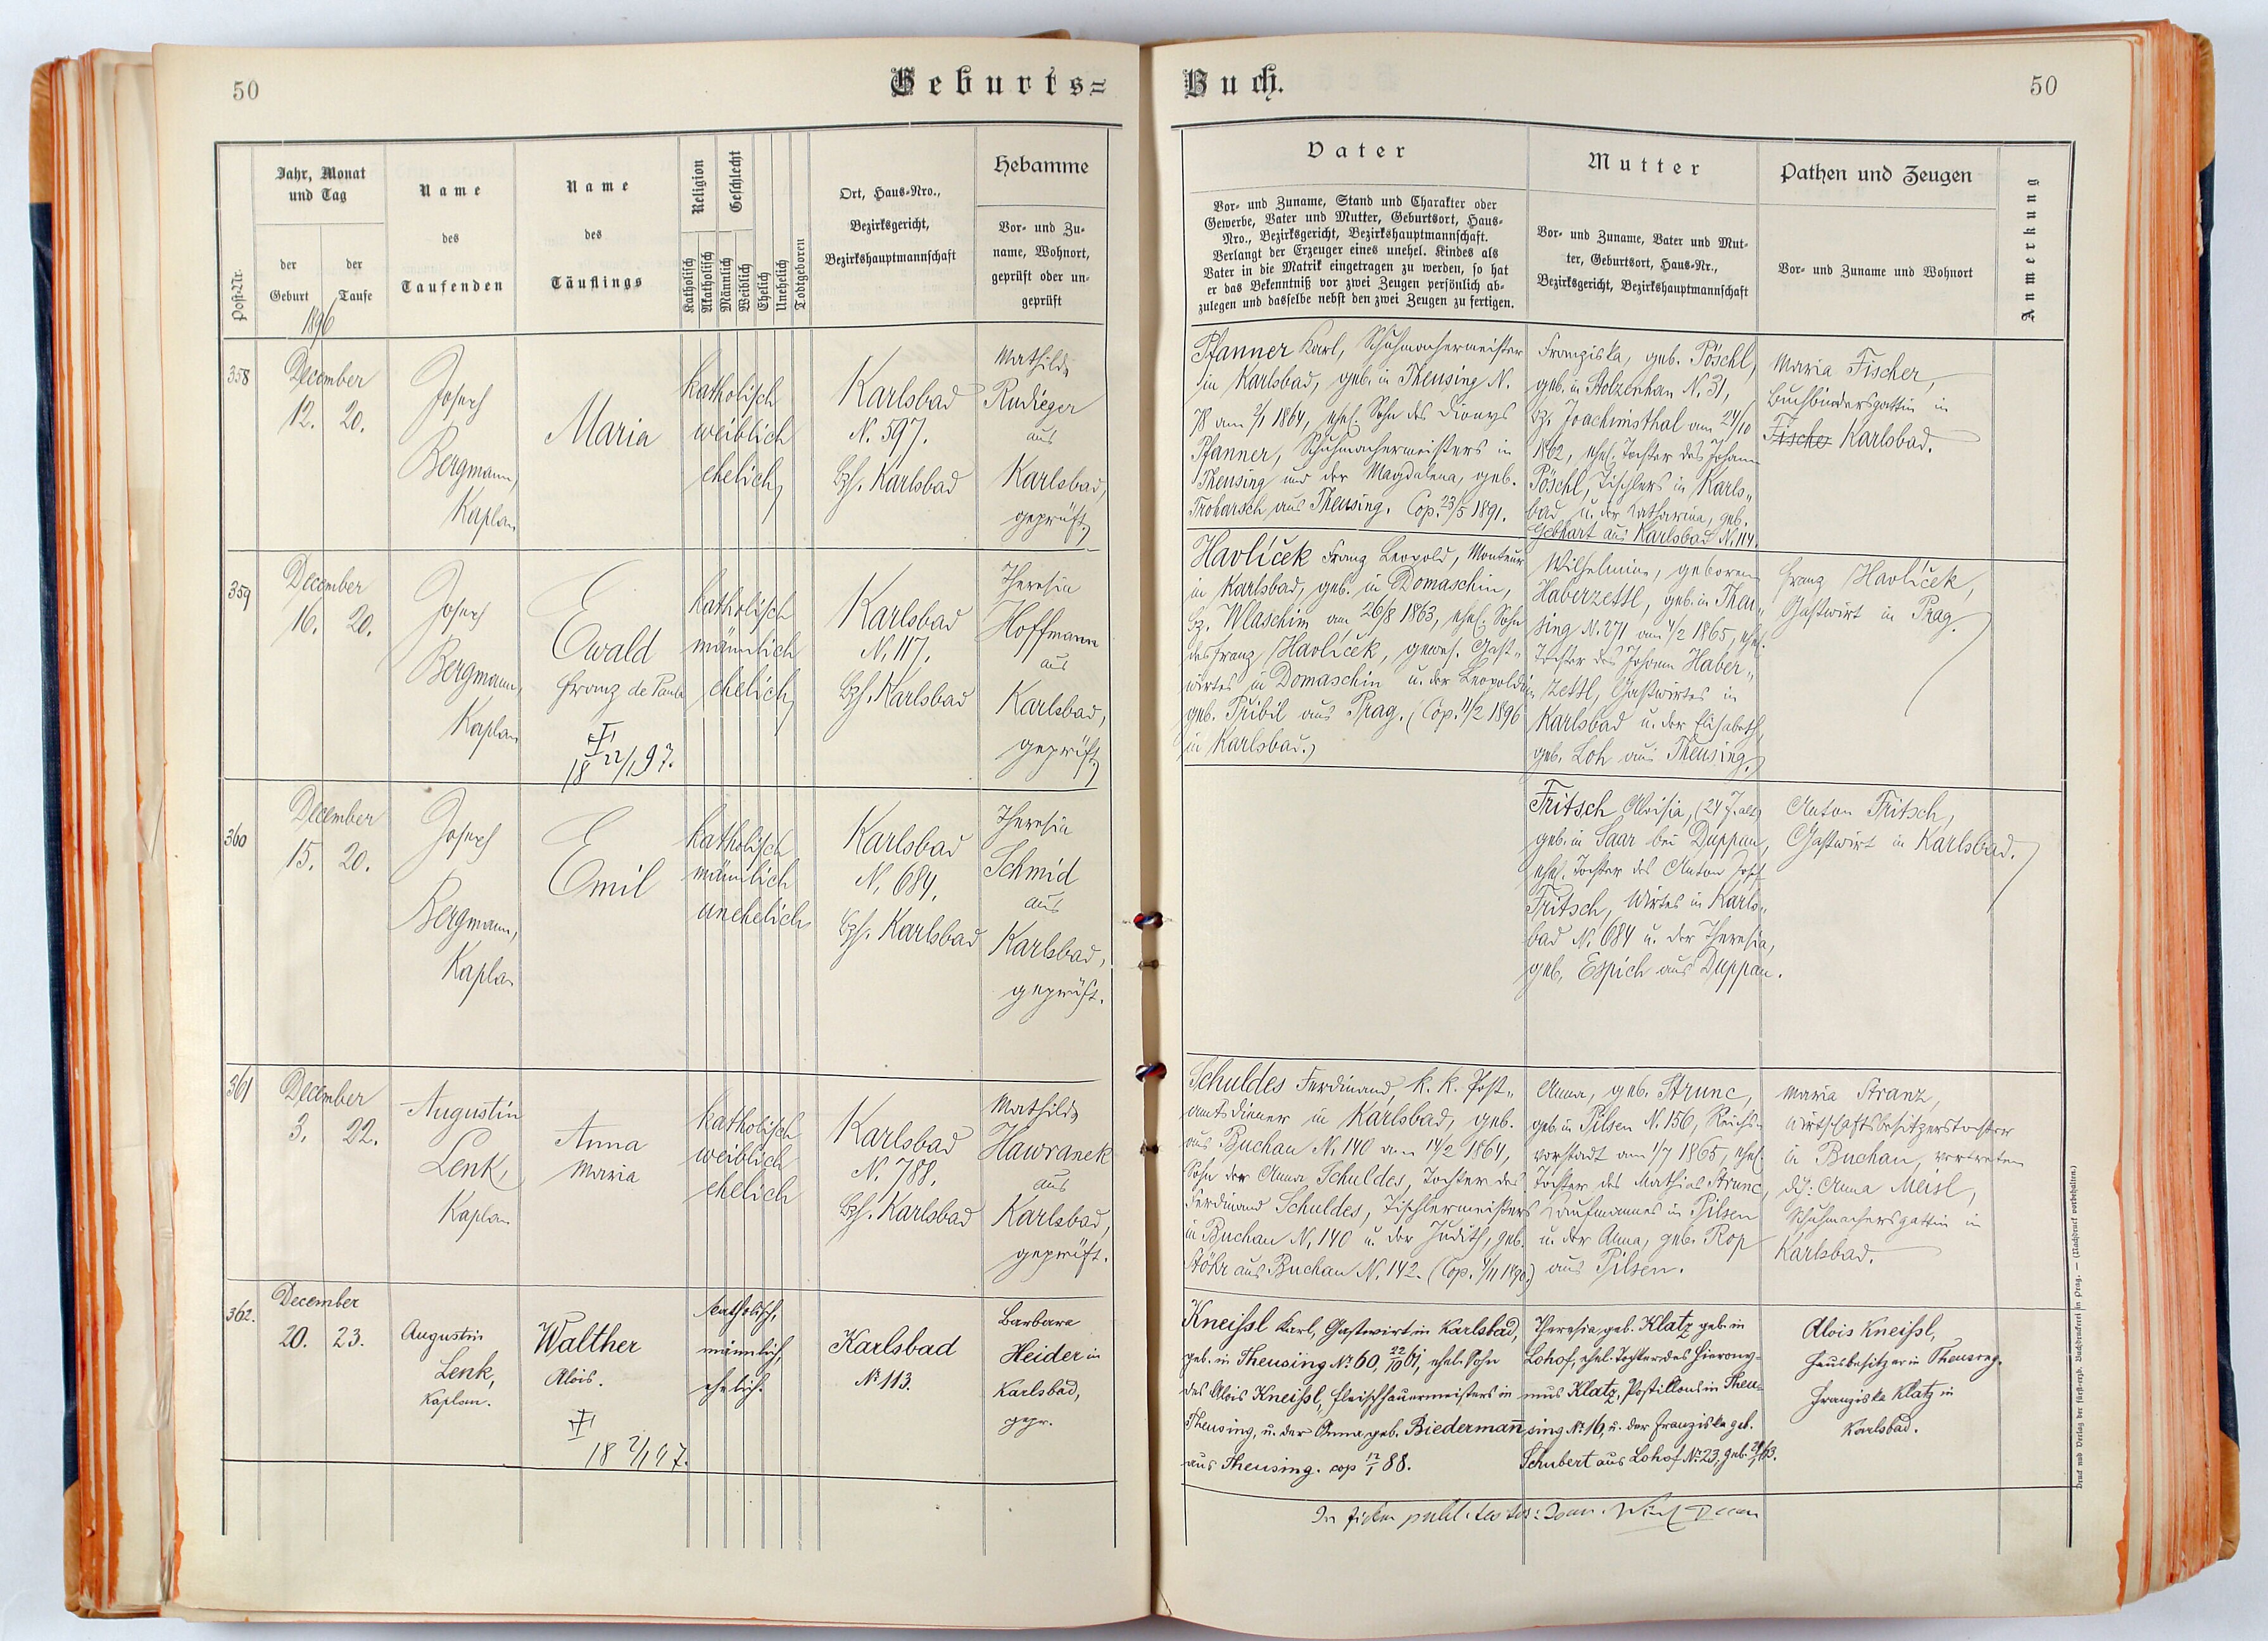 50
Geburts=
Post-Nr.
Jahr, Monat
und Tag
der
Geburt
der
Taufe
1896
Name
des
Taufenden
Name
des
Täuflings
Religion
Geschlecht
Katholisch
Akatholisch
Männlich
Weiblich
Ehelich
Unehelich
Todtgeboren
Ort, Haus-Nro.,
Bezirksgericht,
Bezirkshauptmannschaft
Hebamme
Vor- und Zu-
name, Wohnort,
geprüft oder un-
geprüft
358
December
12. 20.
Josef
Bergmann,
Kaplan
Maria
katholisch
weiblich
ehelich
Karlsbad
N. 597.
Bzh. Karlsbad
Mathilde
Rudieger
aus
Karlsbad,
geprüft
359
December
16. 20.
Josef
Bergmann,
Kaplan
Ewald
Franz de Paula
18 22/1 97.
katholisch
männlich
ehelich
Karlsbad
N. 117.
Bzh. Karlsbad
Theresia
Hoffmann
aus
Karlsbad,
geprüft
360
December
15. 20.
Josef
Bergmann,
Kaplan
Emil
katholisch
männlich
unehelich
Karlsbad
N. 684.
Bzh. Karlsbad
Theresia
Schmid
aus
Karlsbad,
geprüft.
361
December
3. 22.
Augustin
Lenk,
Kaplan
Anna
Maria
katholisch
weiblich
ehelich
Karlsbad
N. 788.
Bzh. Karlsbad
Mathilde
Hawranek
aus
Karlsbad,
geprüft.
362.
December
20. 23.
Augustin
Lenk,
Kaplan.
Walther
Alois.
18 2/1 97.
katholisch,
männlich,
ehelich.
Karlsbad
No 113.
Barbara
Heider in
Karlsbad,
gepr.
Buch.
50
Vater
Vor- und Zuname, Stand und Charakter oder
Gewerbe, Vater und Mutter, Geburtsort, Haus-
Nro., Bezirksgericht, Bezirkshauptmannschaft.
Verlangt der Erzeuger eines unehel. Kindes als
Vater in die Matrik eingetragen zu werden, so hat
er das Bekenntniß vor zwei Zeugen persönlich ab-
zulegen und dasselbe nebst den zwei Zeugen zu fertigen.
Mutter
Vor- und Zuname, Vater und Mut-
ter, Geburtsort, Haus-Nr.,
Bezirksgericht, Bezirkshauptmannschaft
Pathen und Zeugen
Vor- und Zuname und Wohnort
Anmerkung
Pfanner Karl, Schuhmachermeister
in Karlsbad, geb. in Theusing N.
78 am 2/1 1864, ehel. Sohn des Dionys
Pfanner, Schuhmachermeisters in
Theusing und der Magdalena, geb.
Trobarsch aus Theusing. Cop. 23/5 1891.
Franziska, geb. Pöschl,
geb. in Stolzenhan N. 31,
Bz. Joachimsthal am 24/10
1862, ehel. Tochter des Johann
Pöschl, Tischlers in Karls-
bad u. der Katharina, geb.
Gebhart aus Karlsbad N. 114.
Maria Fischer,
Buchbindersgattin in
Fischer Karlsbad.
Havlíček Franz Leopold, Monteur
in Karlsbad, geb. in Domaschin,
Bz. Wlaschim am 26/8 1863, ehel. Sohn
des Franz Havlíček, gewes. Gast-
wirtes in Domaschin u. der Leopoldin
geb. Přibil aus Prag. (Cop. 11/2 1896
in Karlsbad.)
Wilhelmine, geborene
Haberzettl, geb. in Theu-
sing N. 271 am 4/2 1865, ehel.
Tochter des Johann Haber-
zettl, Gastwirtes in
Karlsbad u. der Elisabeth,
geb. Loh aus Theusing.
Franz Havlíček,
Gastwirt in Prag.
Fritsch Aloisia, (24 J. alt)
geb. in Saar bei Duppau,
ehel. Tochter des Anton Josef
Fritsch, Wirtes in Karls-
bad N. 684 u. der Theresia,
geb. Espich aus Duppau.
Anton Fritsch,
Gastwirt in Karlsbad.
Schuldes Ferdinand, k. k. Post-
amtsdiener in Karlsbad, geb.
aus Buchau N. 140 am 14/2 1864,
Sohn der Anna Schuldes, Tochter des
Ferdinand Schuldes, Tischlermeisters
in Buchau N. 140 u. der Judith, geb.
Stöhr aus Buchau N. 142. (Cop. 4/11 1890.)
Anna, geb. Strunc,
geb. in Pilsen N. 156, Reichs-
vorstadt am 1/7 1865, ehel.
Tochter des Mathias Strunc,
Kaufmannes in Pilsen
u. der Anna, geb. Rop
aus Pilsen.
Maria Stranz,
Wirtschaftsbesitzerstochter
in Buchau, vertreten
dch: Anna Meisl,
Schuhmachersgattin in
Karlsbad.
Kneissl Karl, Gastwirt in Karlsbad,
geb. in Theusing No 60, 22/10 61, ehel. Sohn
des Alois Kneissl, Fleischhauermeisters in
Theusing, u. der Anna geb. Biedermann
aus Theusing. cop 12/1 88.
Theresia, geb. Klatz geb. in
Lohof, ehel. Tochter des Hierony-
mus Klatz, Postillons in Theu-
sing No 16, u. der Franziska geb.
Schubert aus Lohof No 23, geb. 63.
Alois Kneissl,
Hausbesitzer in Theusing.
Franziska Klatz in
Karlsbad.
Druck und Verlag der fürsterzb. Buchdruckerei in Prag. — (Nachdruck vorbehalten.)